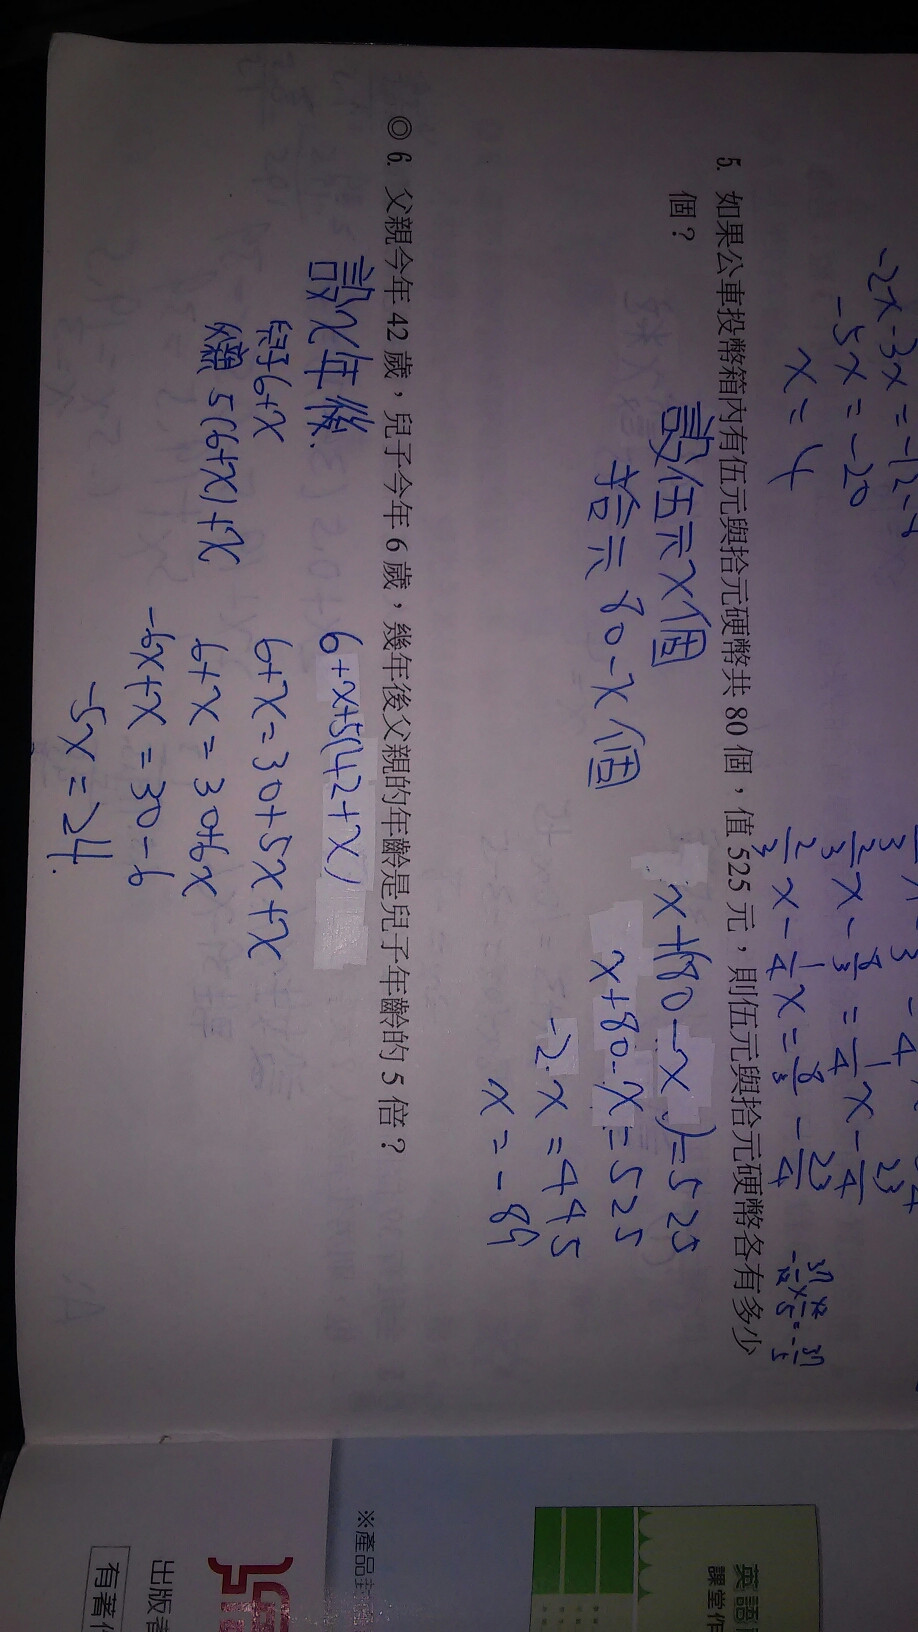 -2x-3x=-12-8
-5x=-20
x=4
5. 如果公車投幣箱內有伍元與拾元硬幣共 80 個，值 525 元，則伍元與拾元硬幣各有多少
個？
設伍元x個
拾元 80-x個
x+(80-x)=525
x+80-x=525
-2x=445
x=-89
◎ 6. 父親今年 42 歲，兒子今年 6 歲，幾年後父親的年齡是兒子年齡的 5 倍？
設x年後
兒子6+x
父親 5(6+x)+x
6+x+5(42+x)
6+x=30+5x+x
6+x=30+6x
-6x+x=30-6
-5x=24.
※產品封
出版者
有著作
英語
課堂作